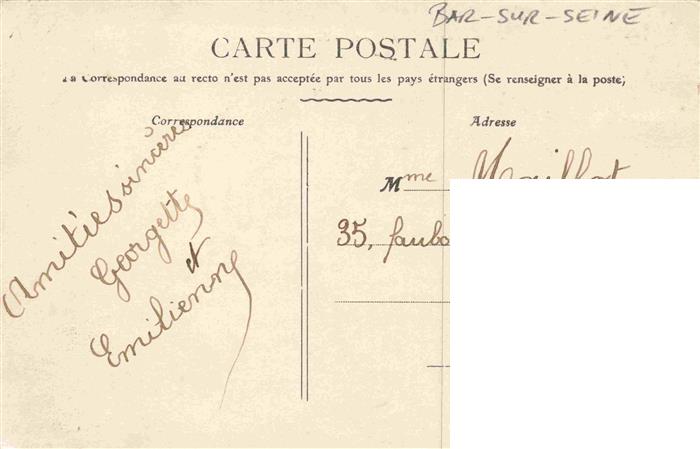 BAR-SUR-SEINE
CARTE POSTALE
La Correspondance au recto n'est pas acceptée par tous les pays étrangers (Se renseigner à la poste)
Correspondance
Amitiés sincères
Georgette
et
Emilienne
Adresse
Mme
35, faubo